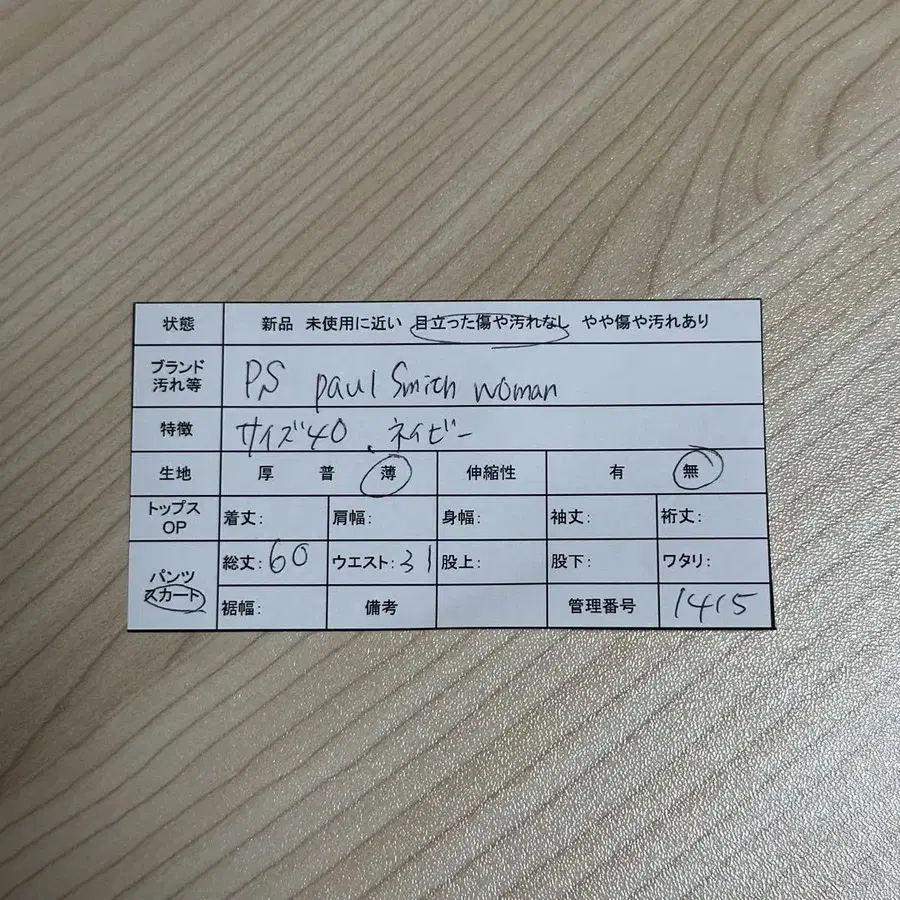 状態 新品 未使用に近い 目立った傷や汚れなし やや傷や汚れあり
ブランド
汚れ等 P,S paul Smith woman
特徴 サイズ40、ネイビー
生地 厚 普 薄 伸縮性 有 無
トップス
OP 着丈: 肩幅: 身幅: 袖丈: 裄丈:
パンツ
スカート 総丈:60 ウエスト:31 股上: 股下: ワタリ:
裾幅: 備考 管理番号 1415